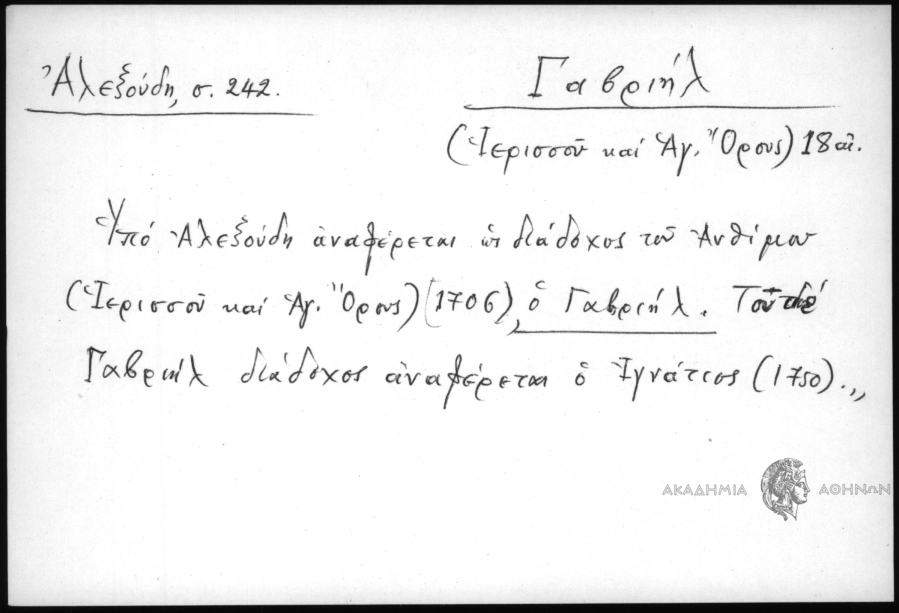 Ἀλεξούδη, σ. 242.
Γαβριήλ
(Ἱερισσοῦ καί Ἁγ. Ὄρους) 18 αἰ.
Ὑπό Ἀλεξούδη ἀναφέρεται ὡς διάδοχος τοῦ Ἀνθίμου
(Ἱερισσοῦ καί Ἁγ. Ὄρους) (1706), ὁ Γαβριήλ. Τοῦ δέ
Γαβριήλ διάδοχος ἀναφέρεται ὁ Ἰγνάτιος (1750).,,
ΑΚΑΔΗΜΙΑ ΑΘΗΝΩΝ